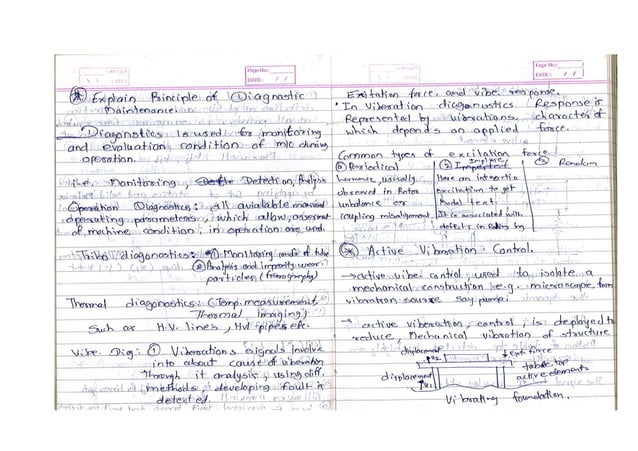 Page No.:
DATE: / /
Explain Principle of Diagnostic
Maintenance
Diagonstics is used for monitoring
and evaluation condition of m/c during
operation.
like. Monitoring, Detection,
Operation Diagnostics: all avialable
operating parameters, which allow
of machine condition, in operation are used.
Tribo diagonostics: ① Monitoring of tube
② Analysis and impurity wear
particles (ferrography)
Thermal diagonostics: (Temp. measurement,
Thermal Imaging)
Such as H.V. lines, pipes etc.
Vibe. Dig: ① Viberations signals involve
into about cause of viberation
Through it analysis, using diff.
methods, developing fault is
detected.
Page No.:
DATE: / /
Exitation force and vibe. response.
In Viberation diagonustics Response is
Represented by vibrations, character of
which depends on applied force.
Common types of excitation force
① Periodical
harmonic, usually
observed in Rotor
unbalance or
coupling misalignment
② Impulse
Here an
excitation to get
Modal text.
It is associated with
defects in by
③ Random
Active Vibration Control.
→ active vibe. control, used to isolate a
mechanical construction e.g. microscope, from
vibration source say pump.
→ active viberation, control, is deployed to
reduce, Mechanical vibration of structure
displacement
u2
ext. force
displacement
u1
table top
active elements
Vibrating foundation.